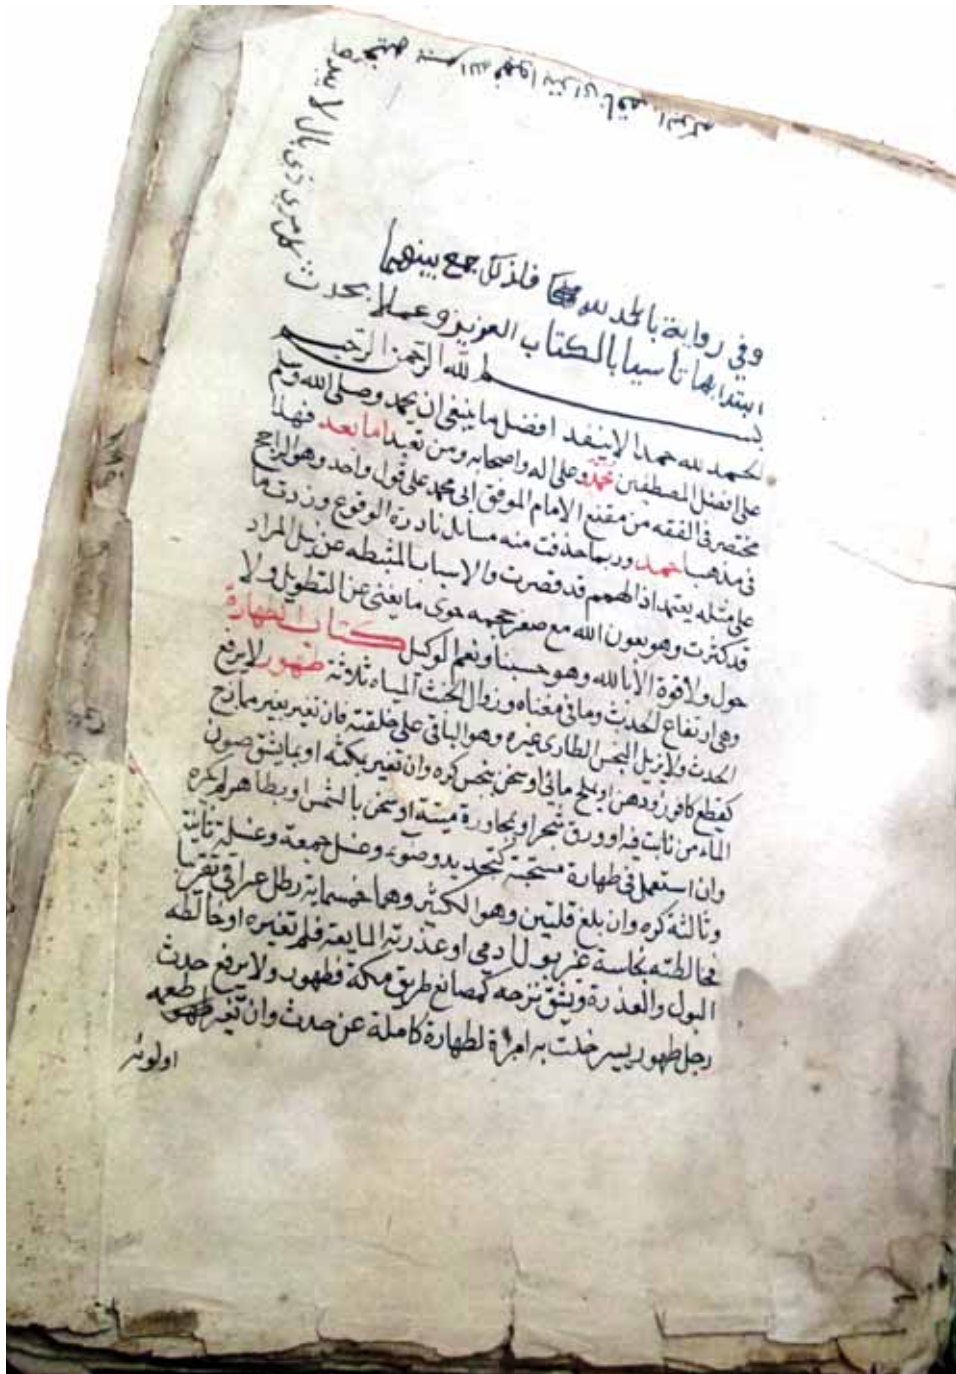 كل امرئ ذي بال لا يبدأ فيه ببسم الله فهو ابتر اي ناقص البركة
وفي رواية بالحمد لله فلذلك جمع بينهما
ابتداء بها تأسيا بالكتاب العزيز وعملا بحدث
بسم الله الرحمن الرحيم
الحمد لله حمدا لا ينفد افضل ما ينبغي ان يحمد وصلى الله وسلم
على افضل المصطفين محمد وعلى اله واصحابه ومن تعبد اما بعد فهذا
مختصر في الفقه من مقنع الامام الموفق ابى محمد على قول واحد وهو الراجح
في مذهب احمد وربما حذفت منه مسايل نادرة الوقوع وزدت ما
على مثله يعتمد اذ الهمم قد قصرت والاسباب المثبطه عن نيل المراد
قد كثرت وهو بعون الله مع صغر حجمه حوى ما يغنى عن التطويل ولا
حول ولا قوة الا بالله وهو حسبنا ونعم الوكيل كتاب الطهارة
وهى ارتفاع الحدث وما فى معناه وزوال الخبث المياه ثلاثة طهور لا يرفع
الحدث ولا يزيل النجس الطارى غيره وهو الباقى على خلقته فان تغير بغير ممازج
كقطع كافور ودهن او بملح مائي او سخن بنجس كره وان تغير بمكثه او بما يشق صون
الماء من نابت فيه او ورق شجر او بمجاورة ميتة او سخن بالشمس او بطاهر لم يكره
وان استعمل فى طهارة مستحبة كتجديد وضوء وغسل جمعة وغسلة ثانية
وثالثة كره وان بلغ قلتين وهو الكثير وهما خمسماية رطل عراقي تقريبا
فخالطته نجاسة غير بول ادمي او عذرته المايعة فلم تغيره او خالطه
البول والعذرة ويشق نزحه كمصانع طريق مكة فطهور ولا يرفع حدث
رجل طهور يسير خلت به امرأة لطهارة كاملة عن حدث وان تغير طعمه
او لونه